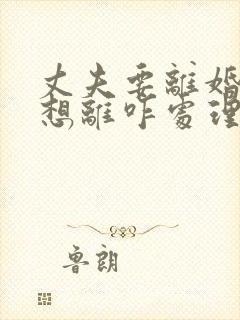 丈夫要離婚
想離咋處理
魯朗